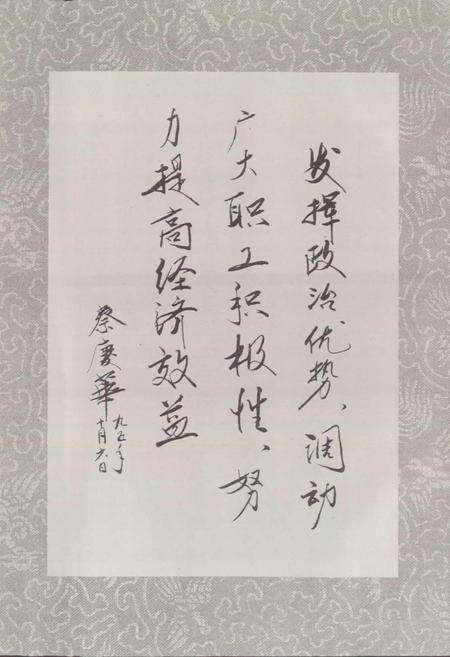 发挥政治优势、调动
广大职工积极性、努
力提高经济效益
蔡庆華
九五年
十月六日